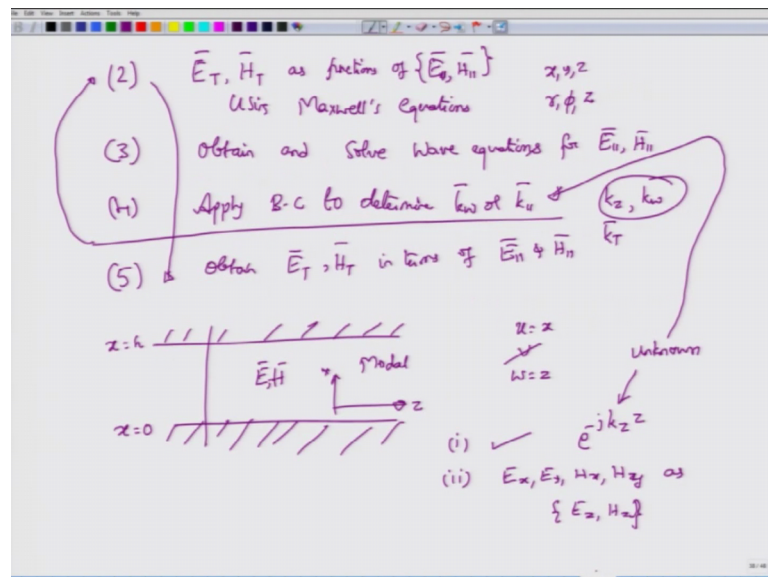 File Edit View Insert Actions Tools Help
(2) E̅_T, H̅_T as functions of {E̅_||, H̅_||} x,y,z
Using Maxwell's Equations r,ϕ,z
(3) Obtain and Solve Wave equations for E̅_||, H̅_||
(4) Apply B-C to determine k̅_w or k̅_|| k_z, k̅_w
k̅_T
(5) Obtain E̅_T, H̅_T in terms of E̅_|| & H̅_||
x=h u=x
E̅,H̅ x Modal v unknown
w=z
z
x=0
(i) ✓ e^{-jk_z z}
(ii) E_x, E_y, H_x, H_y as
{E_z, H_z}
38/48